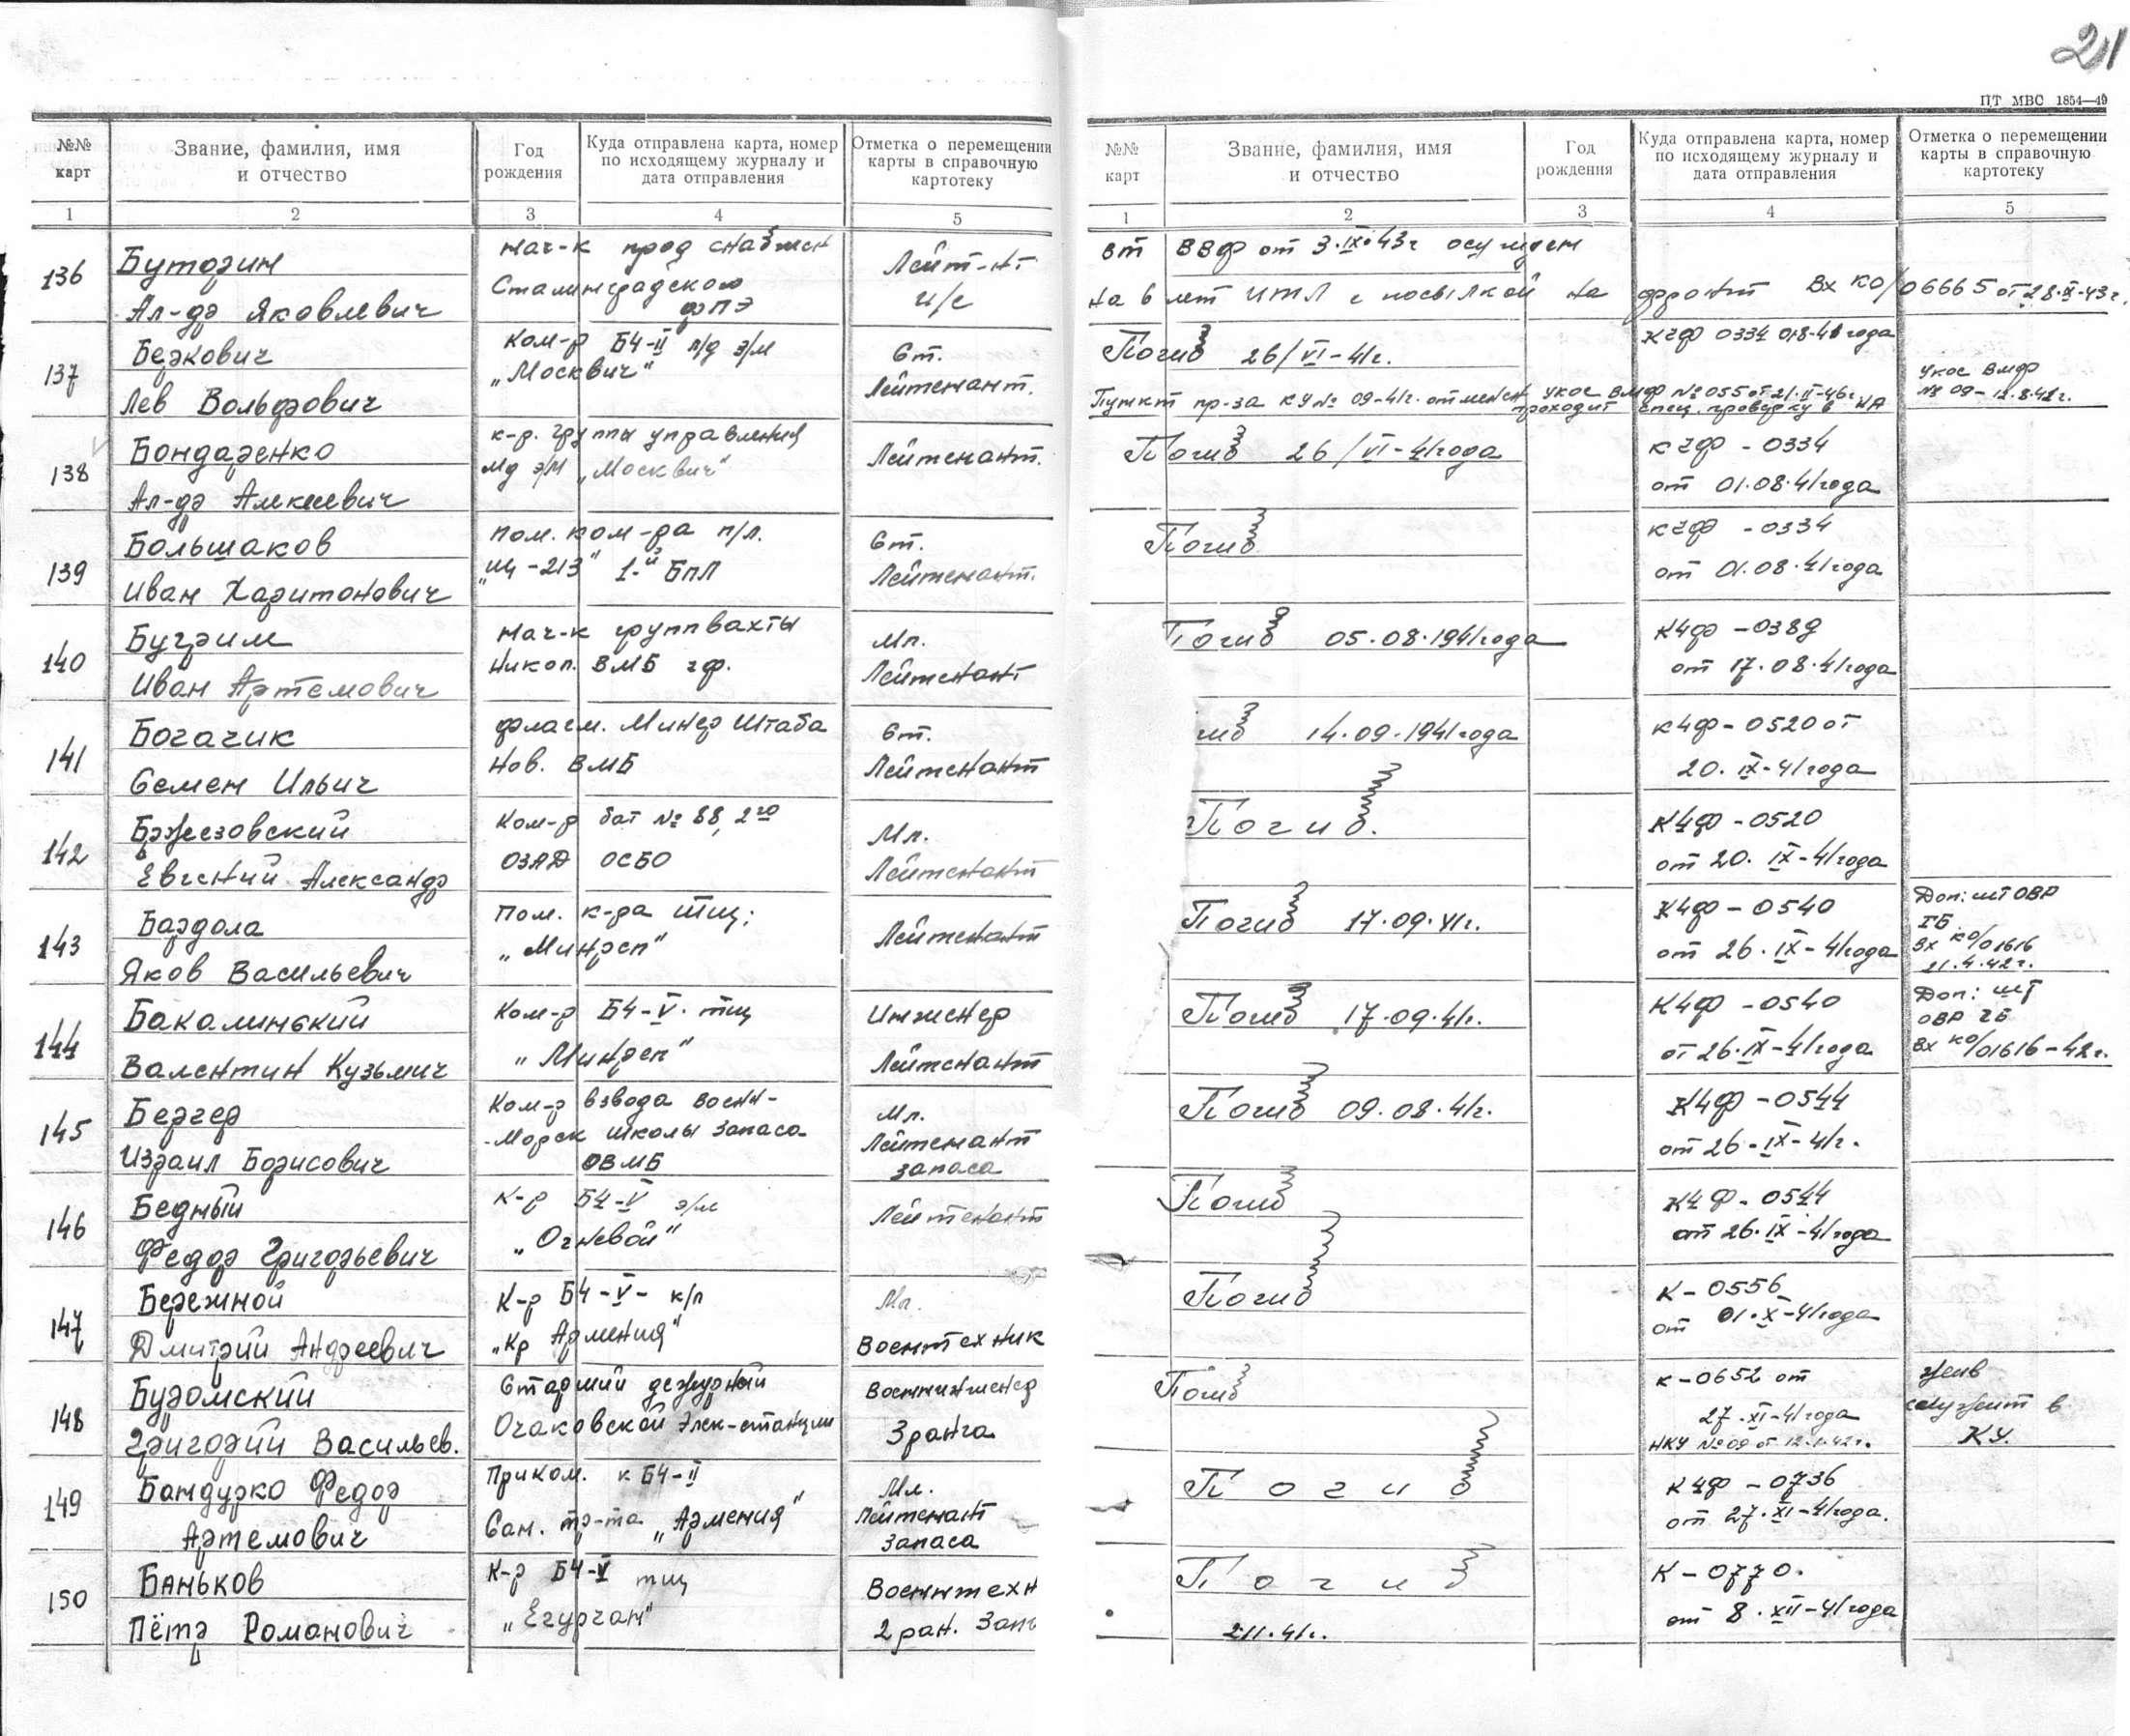 21
ПТ МВС 1854—49
№№ карт
Звание, фамилия, имя и отчество
Год рождения
Куда отправлена карта, номер по исходящему журналу и дата отправления
Отметка о перемещении карты в справочную картотеку
№№ карт
Звание, фамилия, имя и отчество
Год рождения
Куда отправлена карта, номер по исходящему журналу и дата отправления
Отметка о перемещении карты в справочную картотеку
1 2 3 4 5
1 2 3 4 5
136 Буторин
Ал-др Яковлевич
Нач-к прод снабжен
Сталинградского
ФПЭ
Лейт-нт
и/с
вт ВВФ от 3.IX.43г осужден
на 6 лет ИТЛ с посылкой на фронт Вх КО/06665 от 28.IX.43г.
137 Беркович
Лев Вольфович
Ком-р БЧ-II л/д э/м
„Москвич"
Ст.
Лейтенант.
Погиб 26/VI-41г.
КЧФ 0334 01.8-41 года
Пункт пр-за КУ № 09-41г. отменен УКОС ВМФ № 055 от 21.II-46г
проходит спец. проверку в НА
Укос ВМФ
№ 09 - 12.8.42г.
138 Бондаренко
Ал-др Алексеевич
К-р. группы управления
лд э/м „Москвич"
Лейтенант.
Погиб 26/VI-41 года
КЧФ - 0334
от 01.08.41 года
139 Большаков
Иван Харитонович
Пом. ком-ра п/л.
„Щ-213" 1-й БПЛ
Ст.
Лейтенант.
Погиб
КЧФ - 0334
от 01.08.41 года
140 Бугрим
Иван Артемович
Нач-к группвахты
Никол. ВМБ ЧФ.
Мл.
Лейтенант
Погиб 05.08.1941 года
КЧФ - 0389
от 17.08.41 года
141 Богачик
Семен Ильич
Флагм. Минер Штаба
Нов. ВМБ
Ст.
Лейтенант
иб 14.09.1941 года
КЧФ - 0520 от
20.IX-41 года
142 Бржезовский
Евгений Александр
Ком-р бат № 88, 2го
ОЗАД ОСБО
Мл.
Лейтенант
Погиб.
КЧФ - 0520
от 20.IX-41 года
143 Бардола
Яков Васильевич
Пом. к-ра тщ:
„Минреп"
Лейтенант
Погиб 17.09.41г.
КЧФ - 0540
от 26.IX-41 года
Доп: шт ОВР
ГБ
Вх КО/01616
21.4.42г.
144 Бакалинский
Валентин Кузьмич
Ком-р БЧ-V. тщ
„Минреп"
Инженер
Лейтенант
Погиб 17.09.41г.
КЧФ - 0540
от 26.IX-41 года
Доп: шт
ОВР ГБ
Вх КО/01616-42г.
145 Бергер
Израил Борисович
Ком-р взвода Военн-
-Морск школы запаса
ОВМБ
Мл.
Лейтенант
запаса
Погиб 09.08.41г.
КЧФ - 0544
от 26-IX-41г.
146 Бедный
Федор Григорьевич
К-р БЧ-V э/м
„Огневой"
Лейтенант
Погиб
КЧФ - 0544
от 26.IX-41 года
147 Бережной
Дмитрий Андреевич
К-р БЧ-V- к/л
„Кр Армения"
Мл.
Воентехник
Погиб
К - 0556
от 01.X-41 года
148 Буромский
Григорий Васильев.
Старший дежурный
Очаковской Элек-станции
Военинженер
3 ранга
Погиб
К - 0652 от
27.XI-41 года
НКУ № 09 от 12.1.42г.
Жив
служит в
КУ.
149 Бандурко Федор
Артемович
Приком. к БЧ-II
Сан. тр-та „Армения"
Мл.
Лейтенант
Запаса
Погиб
КЧФ - 0736
от 27.XI-41 года.
150 Баньков
Пётр Романович
К-р БЧ-V тщ
„Егурчан"
Воентехн
2 ран. Зап
Погиб
2.11.41г.
К - 0770.
от 8.XII-41 года